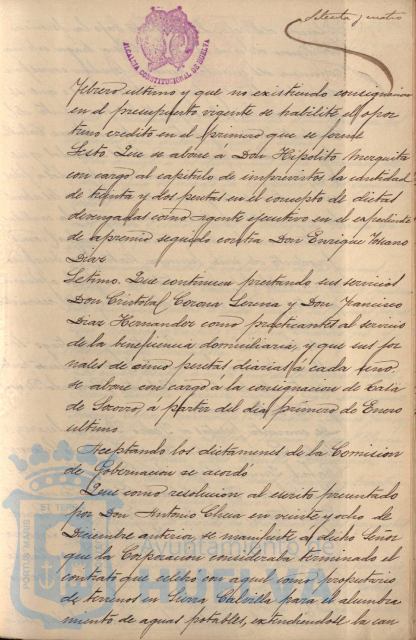 Setenta y cuatro
ALCALDIA CONSTITUCIONAL DE HUELVA
febrero ultimo y que no existiendo consignacion
en el presupuesto vigente se habilite el opor
tuno credito en el primero que se forme
Sesto. Que se abone á Don Hipolito Mezquita
con cargo al capitulo de imprevistos la cantidad
de treinta y dos pesetas en el concepto de dietas
devengadas como agente ejecutivo en el expediente
de apremio seguido contra Don Enrique Toscano
Diaz
Setimo. Que continuen prestando sus servicios
Don Cristobal Corona Lerena y Don Francisco
Diaz Hernandez como practicantes al servicio
de la beneficencia domiciliaria, y que sus jor
nales de cinco pesetas diarias á cada uno
se abone con cargo á la consignacion de Casa
de Socorro, á partir del dia primero de Enero
ultimo.
Aceptando los dictamenes de la Comision
de Gobernacion se acordó
Que como resolucion al escrito presentado
por Don Antonio Checa en veinte y ocho de
Diciembre anterior, se manifieste á dicho Señor
que la Corporacion consideraba terminado el
contrato que celebró con aquel como propietario
de terrenos en Sierra Calvilla para el alumbra
miento de aguas potables, extendiendose la can
Ayuntamiento de
HUELVA
PORTUS MARIS ET TER